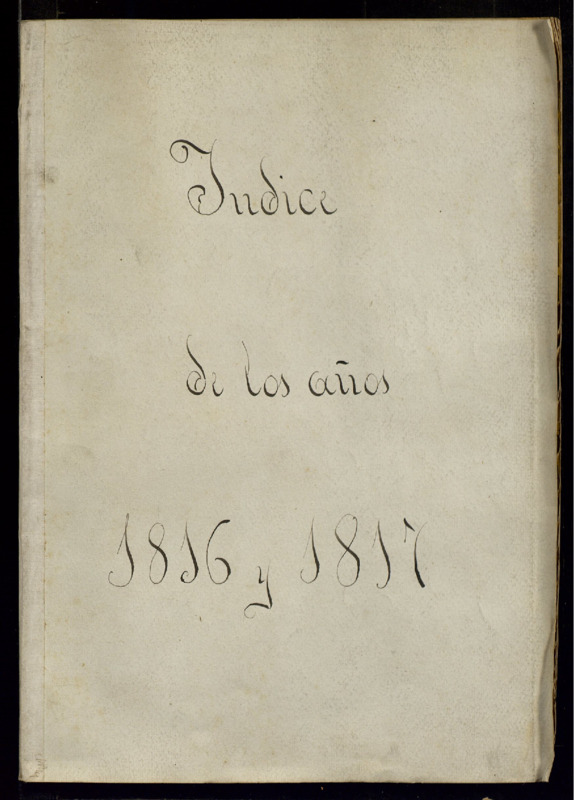 Indice
de los años
1816 y 1817